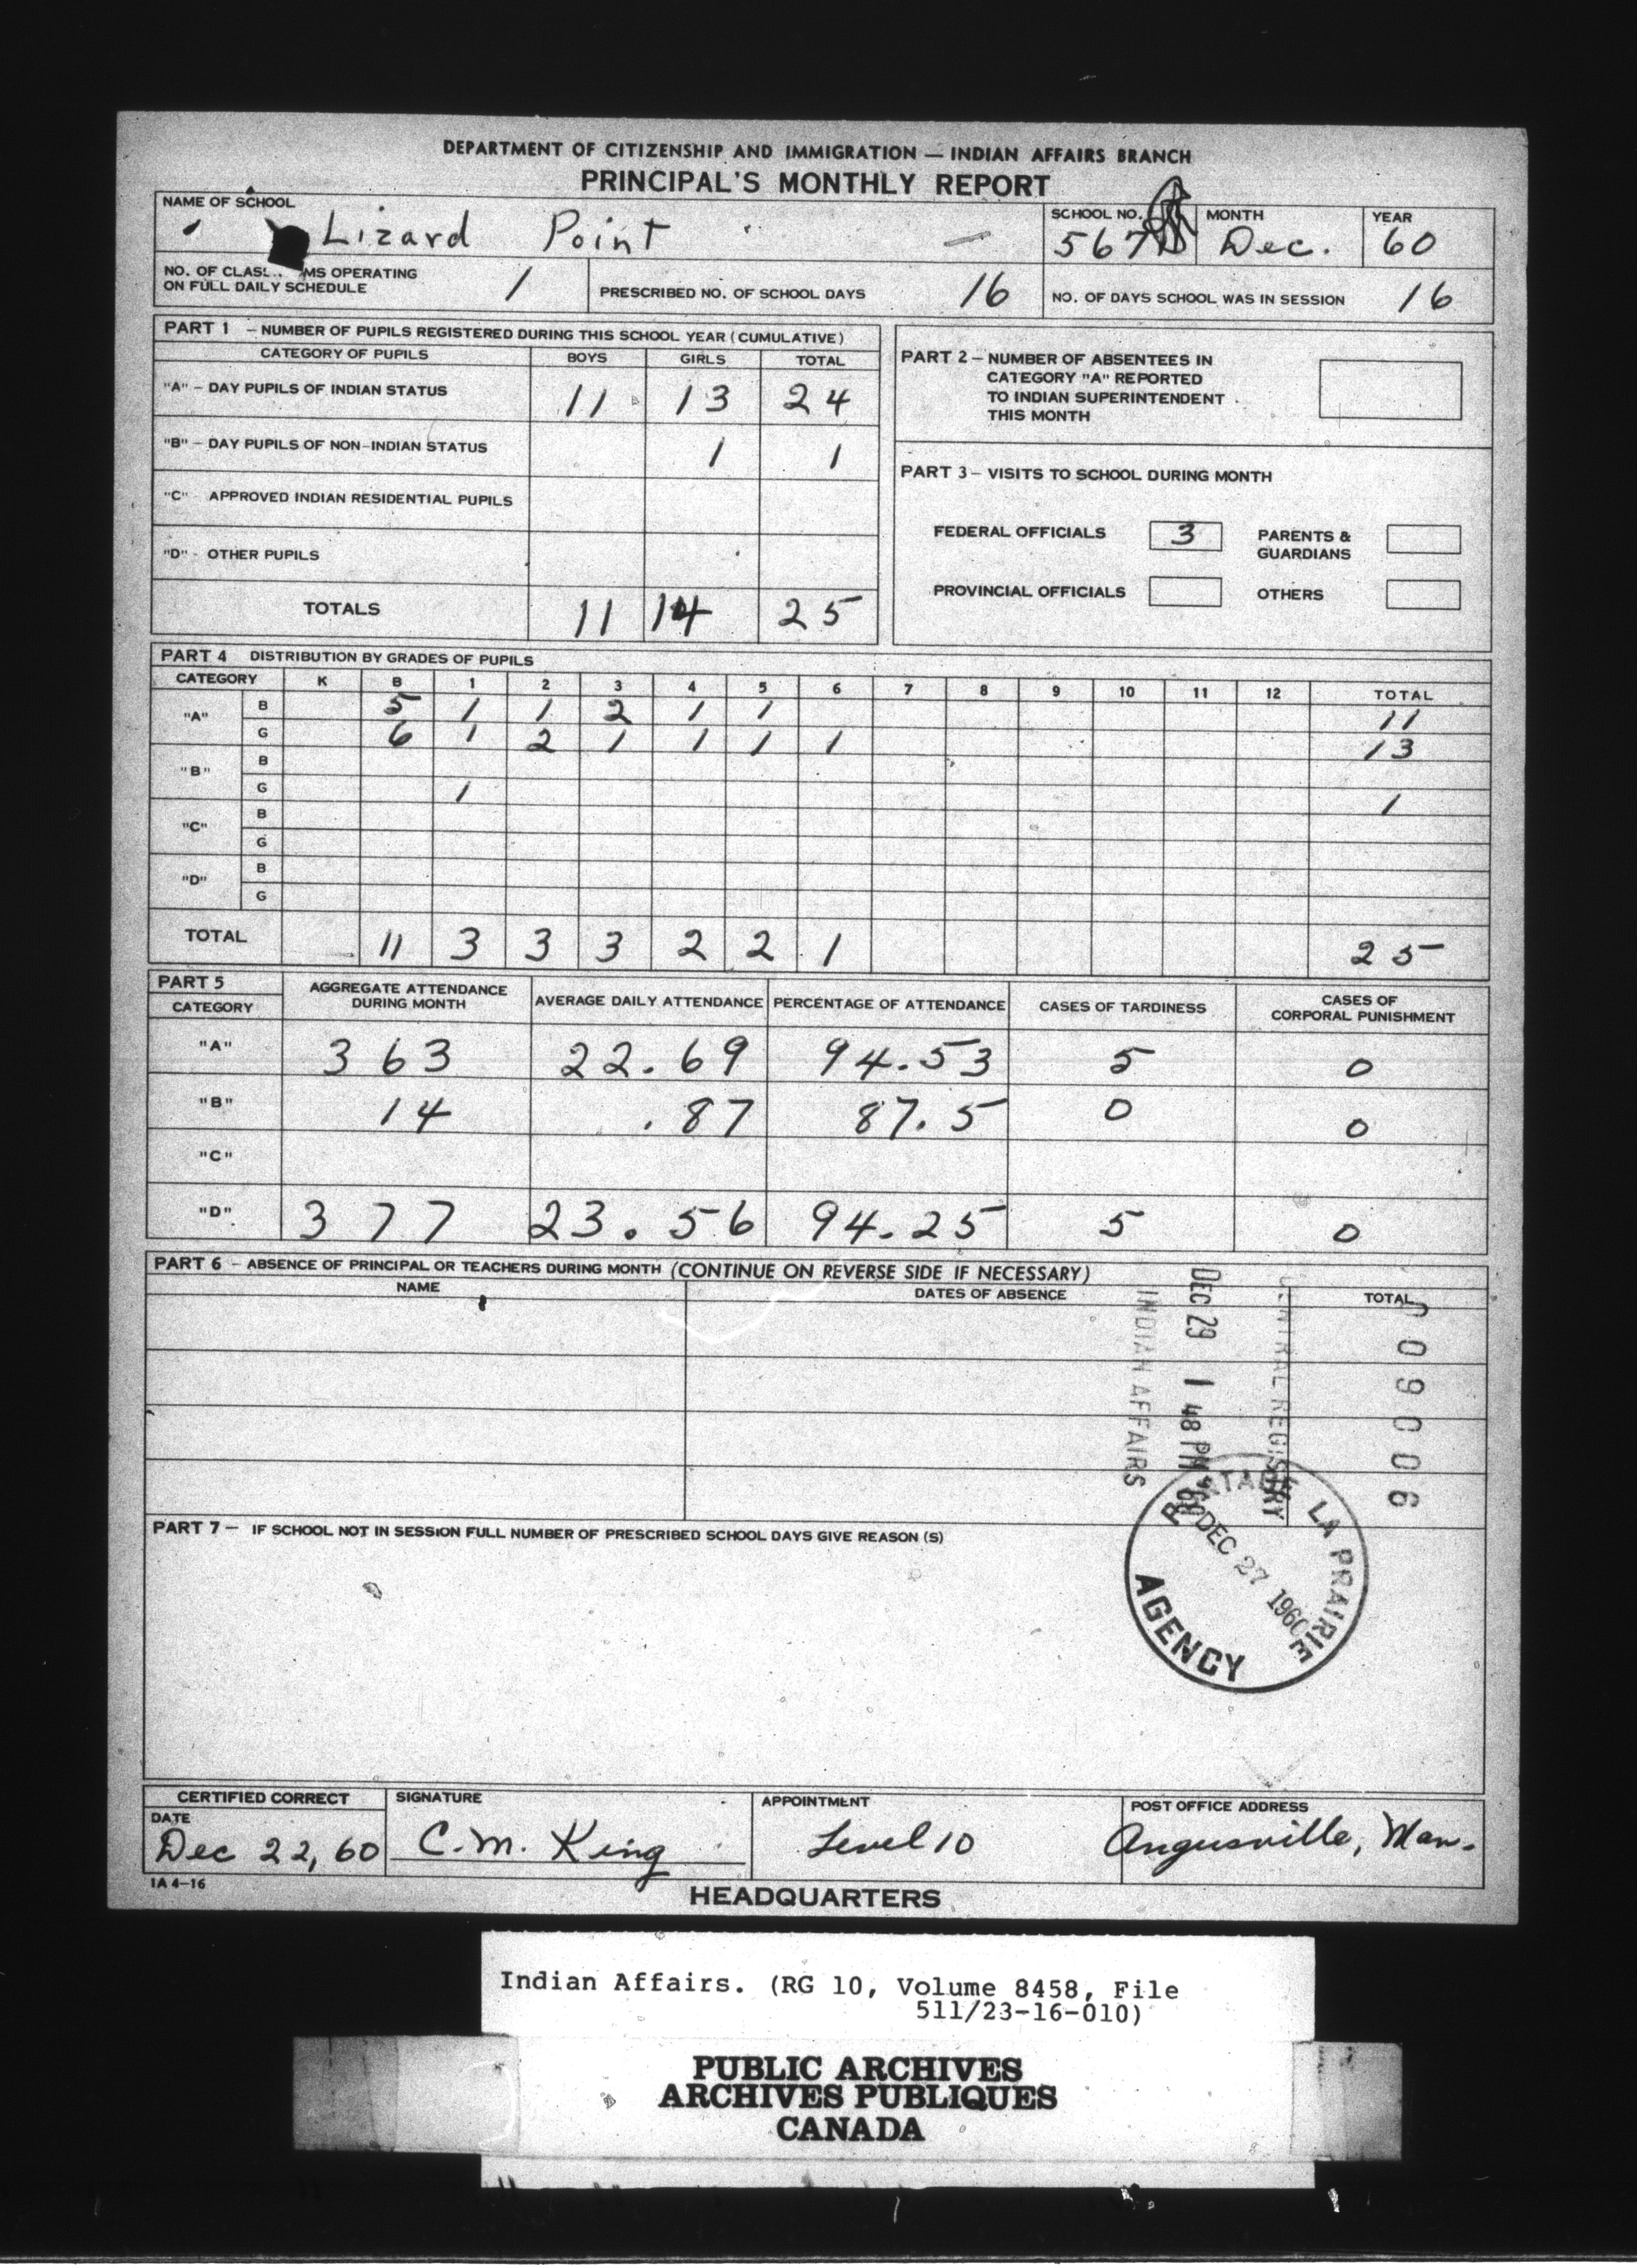 DEPARTMENT OF CITIZENSHIP AND IMMIGRATION — INDIAN AFFAIRS BRANCH
PRINCIPAL'S MONTHLY REPORT
NAME OF SCHOOL
Lizard Point
SCHOOL NO.
567
MONTH
Dec.
YEAR
60
NO. OF CLAS MS OPERATING
ON FULL DAILY SCHEDULE
1
PRESCRIBED NO. OF SCHOOL DAYS 16
NO. OF DAYS SCHOOL WAS IN SESSION 16
PART 1 – NUMBER OF PUPILS REGISTERED DURING THIS SCHOOL YEAR (CUMULATIVE)
CATEGORY OF PUPILS BOYS GIRLS TOTAL
"A" – DAY PUPILS OF INDIAN STATUS 11 13 24
"B" – DAY PUPILS OF NON-INDIAN STATUS 1 1
"C" APPROVED INDIAN RESIDENTIAL PUPILS
"D" - OTHER PUPILS
TOTALS 11 14 25
PART 2 – NUMBER OF ABSENTEES IN
CATEGORY "A" REPORTED
TO INDIAN SUPERINTENDENT
THIS MONTH
PART 3 – VISITS TO SCHOOL DURING MONTH
FEDERAL OFFICIALS 3
PARENTS &
GUARDIANS
PROVINCIAL OFFICIALS
OTHERS
PART 4 DISTRIBUTION BY GRADES OF PUPILS
CATEGORY K B 1 2 3 4 5 6 7 8 9 10 11 12 TOTAL
"A" B 5 1 1 2 1 1 11
G 6 1 2 1 1 1 1 13
"B" B
G 1 1
"C" B
G
"D" B
G
TOTAL 11 3 3 3 2 2 1 25
PART 5
CATEGORY
AGGREGATE ATTENDANCE
DURING MONTH
AVERAGE DAILY ATTENDANCE
PERCENTAGE OF ATTENDANCE
CASES OF TARDINESS
CASES OF
CORPORAL PUNISHMENT
"A" 363 22.69 94.53 5 0
"B" 14 .87 87.5 0 0
"C"
"D" 377 23.56 94.25 5 0
PART 6 – ABSENCE OF PRINCIPAL OR TEACHERS DURING MONTH (CONTINUE ON REVERSE SIDE IF NECESSARY)
NAME DATES OF ABSENCE TOTAL
INDIAN AFFAIRS
DEC 29 1 48 PM
CENTRAL REGISTRY
09006
PORTAGE LA PRAIRIE
DEC 27 1960
AGENCY
PART 7 – IF SCHOOL NOT IN SESSION FULL NUMBER OF PRESCRIBED SCHOOL DAYS GIVE REASON (S)
CERTIFIED CORRECT
DATE
Dec 22, 60
SIGNATURE
C.M. King
APPOINTMENT
Level 10
POST OFFICE ADDRESS
Angusville, Man.
IA 4-16
HEADQUARTERS
Indian Affairs. (RG 10, Volume 8458, File
511/23-16-010)
PUBLIC ARCHIVES
ARCHIVES PUBLIQUES
CANADA